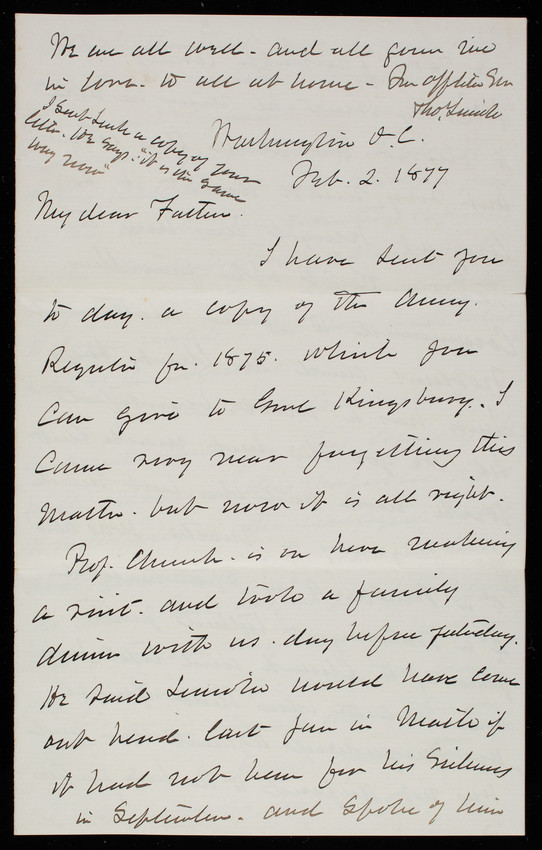 We are all well - and all join me
in love - to all at home - Your aff Son
Thos. Lincoln
I sent Linc a copy of your
letter. He says. "it is the same
way now"
Washington D.C.
Feb. 2. 1877
My dear Father.
I have sent you
to day. a copy of the Army.
Register for. 1875. which you
can give to Genl Kingsbury. I
came very near forgetting this
matter. but now it is all right.
Prof. Church. is on here making
a visit. and took a family
dinner with us. day before yesterday.
He said Lincoln would have come
out head. last Jan in Math if
it had not been for his sickness
in September. and spoke of him